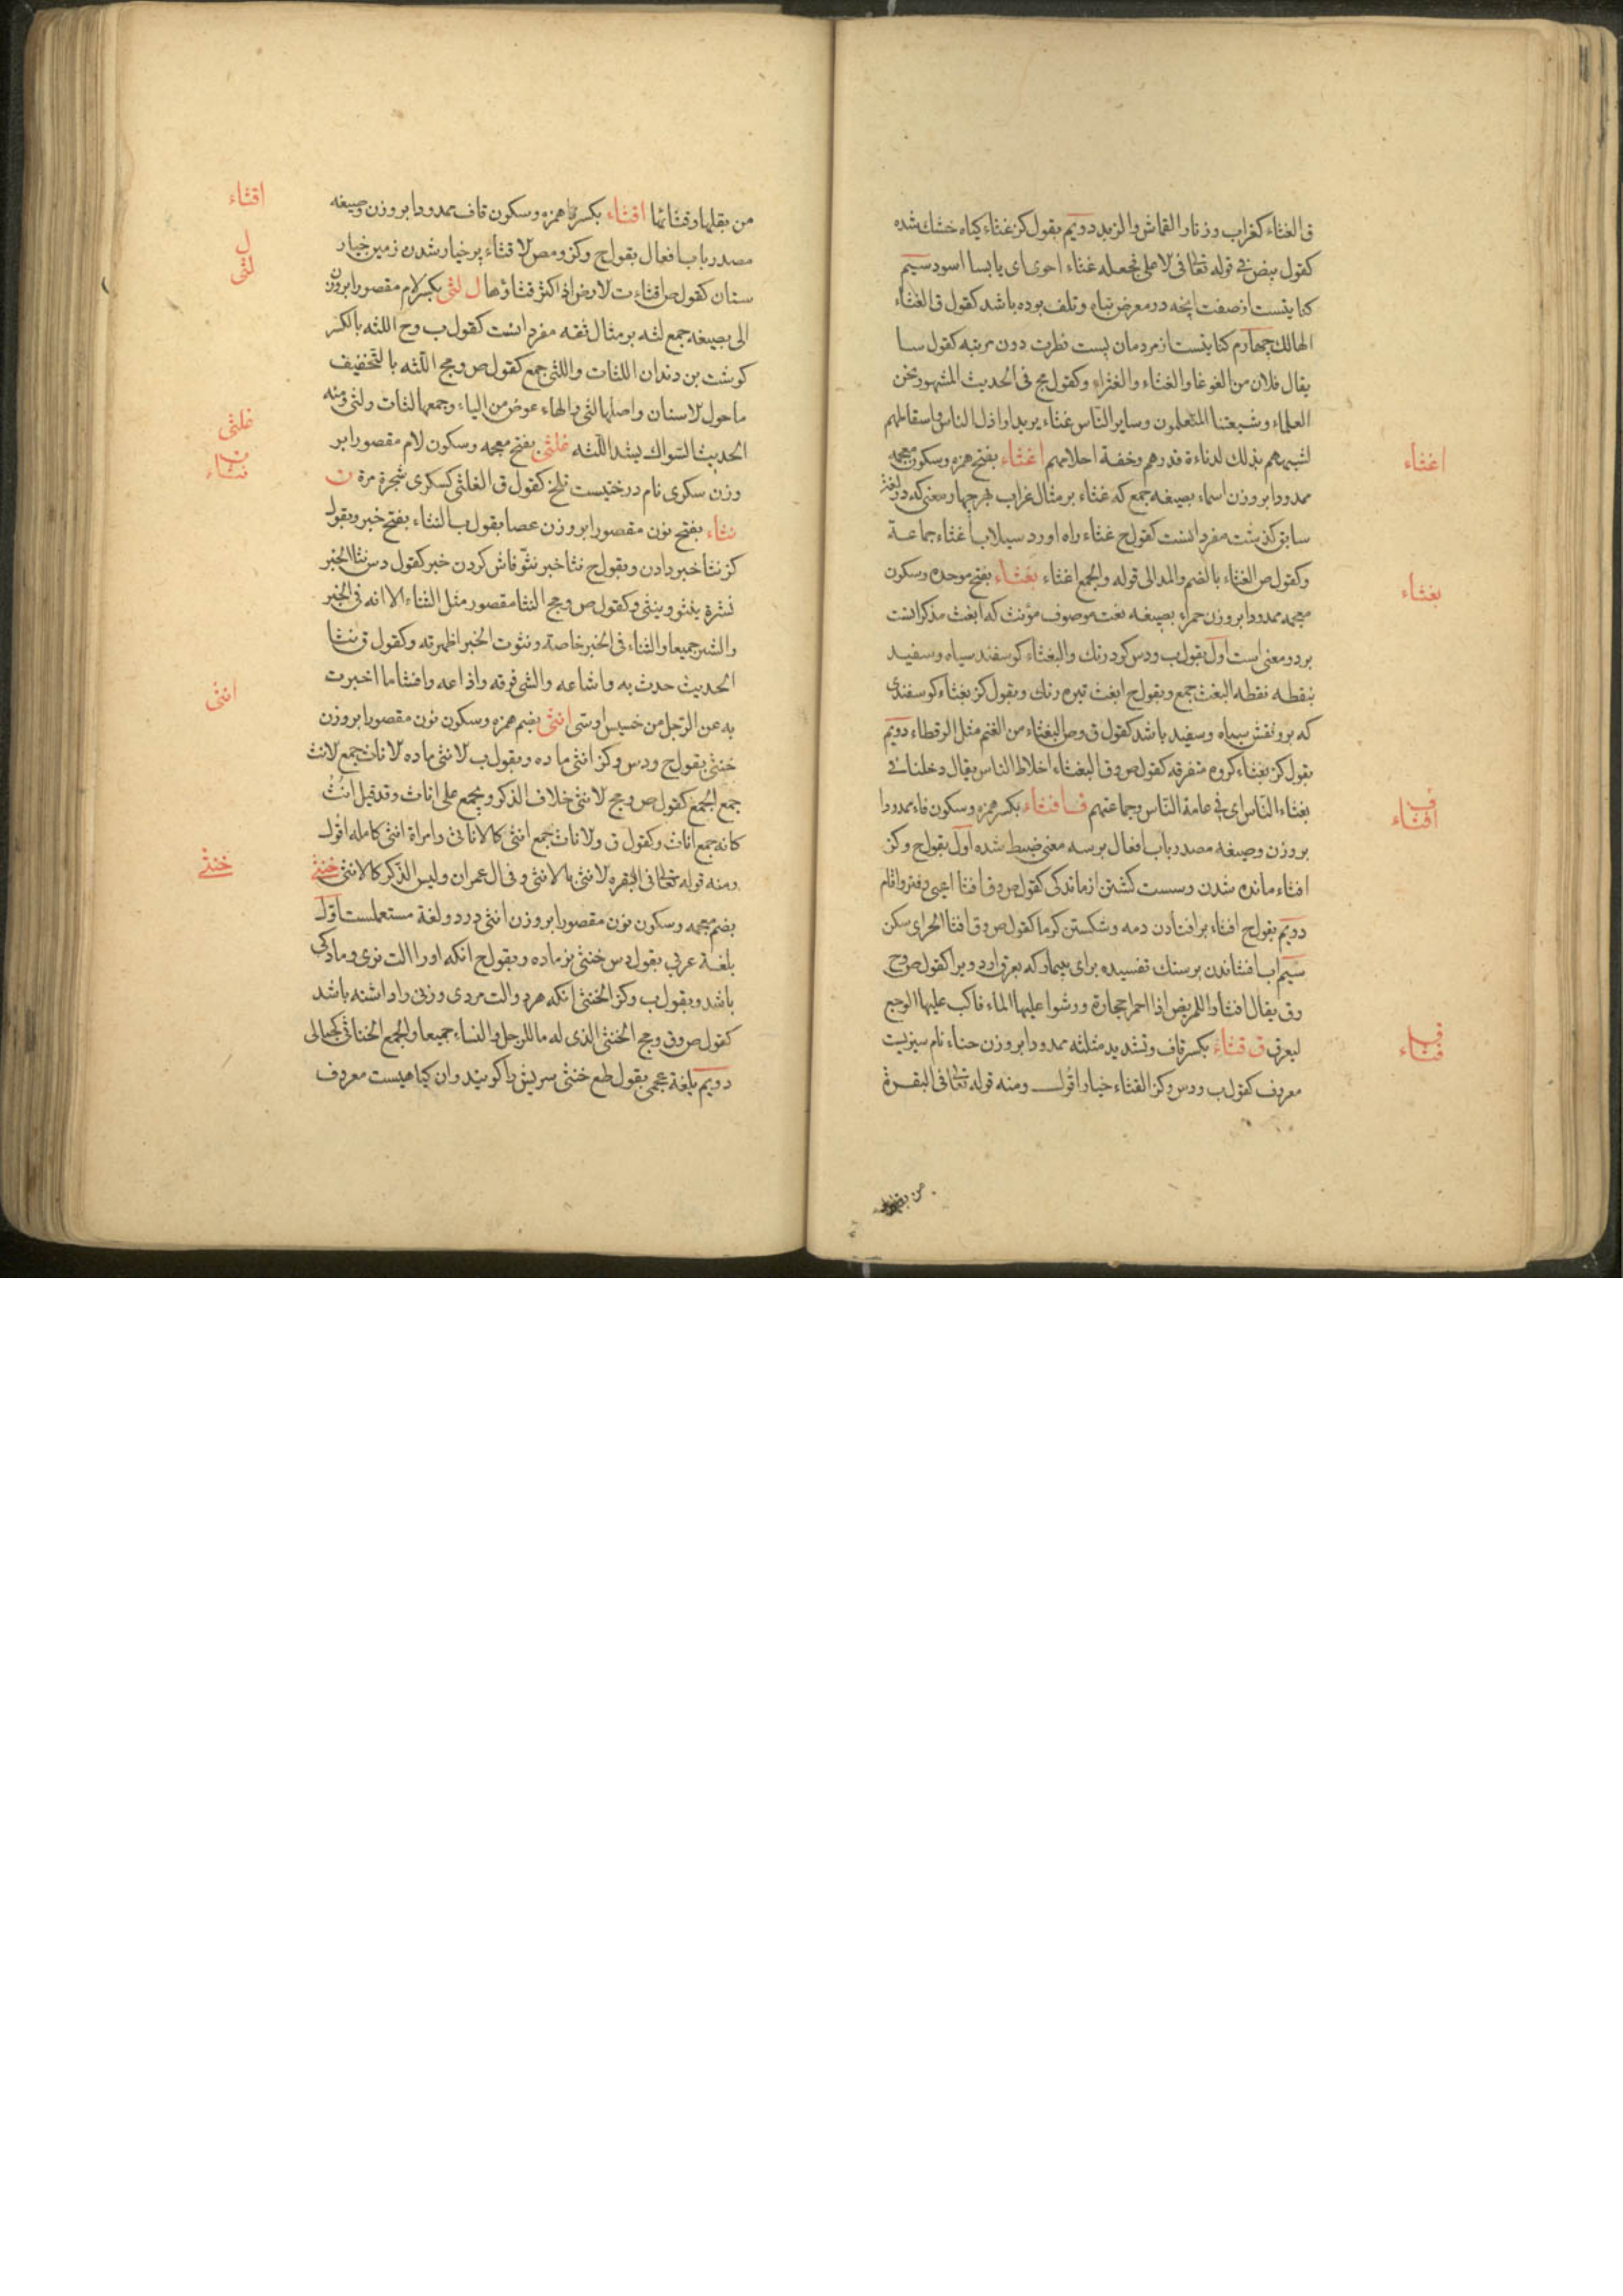 ق الغثاء كغراب وزنار القماش والزبد دويم بقول كز غثاء كياه خشك شده
كقول بيض فى قوله تعالى فى لا على فجعله غثاء احوى اى يابسا اسود سيم
كنايتست از صفت انچه در معرض تباه وتلف بوده باشد كقول ق الغثاء
الهالك چهارم كنايتست از مردمان پست فطرت دون مرتبه كقول سا
يقال فلان من الغوغا والغثاء والغثراء وكقول مج فى الحديث المشهور نحن
العلماء وشيعتنا المتعلمون وساير الناس غثاء يريد اراذل الناس واسقاطهم
لشبههم بذلك لدناءة قدرهم وخفة احلامهم اغثاء بفتح همزه وسكون معجمه
ممدودا بر وزن اسماء بصيغه جمع كه غثاء بر مثال غراب بهر چهار معنى كه در لغة
سابق كذشت مفرد انست كقول ح غثاء راه اورد سيلاب اغثاء جماعة
وكقول ص الغثاء بالضم والمد الى قوله والجمع اغثاء بغثاء بفتح موحده وسكون
معجمه ممدودا بر وزن حمراء بصيغه نعت موصوف مؤنث كه ابغث مذكر انست
بر دو معنى است اول بقول ب ودس كرد رنك والبغثاء كوسفند سياه وسفيد
نقطه نقطه البغث جمع وبقول ح ابغث تيره رنك وبقول كز بغثاء كوسفندى
كه برو نقش سياه وسفيد باشد كقول ق وص البغثاء من الغنم مثل الرقطاء دويم
بقول كز بغثاء كروه متفرقه كقول ص وق البغثاء اخلاط الناس يقال دخلنا فى
بغثاء الناس اى فى عامة الناس وجماعتهم ف افثاء بكسر همزه وسكون فاء ممدودا
بر وزن وصيغه مصدر باب افعال بر سه معنى ضبط شده اول بقول ح وكز
افثاء مانده شدن وسست كشتن از ماندكى كقول ص وق افثا اعيى وفتر واقام
دويم بقول ح افثاء بر افتادن دمه وشكستن كرما كقول ص وق افثا الحر اى سكن
سيم اب افشاندن بر سنك تفسيده براى بيمار كه بعرق ارد ويرا كقول ص وح
وق يقال افثاوا للمريض اذا احمر حجارة ورشوا عليها الماء فاكب عليها الوجع
ليعرق ق قثاء بكسر قاف وتشديد مثلثه ممدودا بر وزن حناء نام سبزيست
معروف كقول ب ودس وكز القثاء خيار اقول ومنه قوله تعالى فى البقرة
اغثاء
بغثاء
ف
افثاء
ق
قثاء
من بقلها وقثائها اقثاء بكسر همزه وسكون قاف ممدودا بر وزن وصيغه
مصدر باب افعال بقول ح وكز ومص لا قثاء پر خيار شدن زمين خيار
ستان كقول ص اقثاءت لارض اذا كثر قثاؤها ل لثى بكسر لام مقصورا بر وزن
الى بصيغه جمع لثه بر مثال ثقه مفرد انست كقول ب وح اللثه بالكسر
كوشت بن دندان اللثات واللثى جمع كقول ص ومج اللثه بالتخفيف
ما حول لاسنان واصلها لثى والهاء عوض من الياء وجمعها لثات ولثى ومنه
الحديث السواك يشد اللثه غلثى بفتح معجمه وسكون لام مقصورا بر
وزن سكرى نام درختيست تلخ كقول ق الغلثى كسكرى شجرة مرة ن
نثاء بفتح نون مقصورا بر وزن عصا بقول ب النثاء بفتح خبر وبقول
كز نثا خبر دادن وبقول ح نثا خبر نثو فاش كردن خبر كقول دس نثا الخبر
نشره ينثو وينثى وكقول ص ومج النثا مقصور مثل الثناء الا انه فى الخير
والشر جميعا والثناء فى الخير خاصة ونثوت الخبر اظهرته وكقول ق نثا
الحديث حدث به واشاعه والشى فرقه واذاعه والنثا ما اخبرت
به عن الرجل من حسن او سى انثى بضم همزه وسكون نون مقصورا بر وزن
خنثى بقول ح ودس وكز انثى ماده وبقول ب لانثى ماده لاناث جمع لانث
جمع الجمع كقول ص ومج لانثى خلاف الذكر ويجمع على اناث وقد قيل انث
كانه جمع اناث وكقول ق ولاناث جمع انثى كالاناثى وامراة انثى كامله اقول
ومنه قوله تعالى فى البقره لانثى بالانثى وفى ال عمران وليس الذكر كالانثى خنثى
بضم معجمه وسكون نون مقصورا بر وزن انثى در دو لغة مستعملست اول
بلغة عربى بقول دس خنثى نر ماده وبقول ح انكه او را الت نرى ومادكى
باشد وبقول ب وكز الخنثى انكه هر دو الت مردى وزنى را داشته باشد
كقول ص وق ومج الخنثى الذى له ما للرجل والنساء جميعا والجمع الخناثى كحبالى
دويم بلغة عجمى بقول طع خنثى سريش را كويند وان كياهيست معروف
اقثاء
ل
لثى
غلثى
ن
نثاء
انثى
خنثى